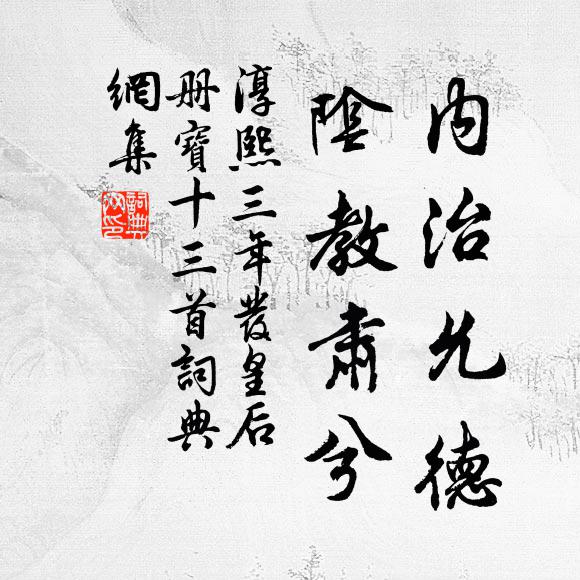 內治允德
陰教肅兮
淳熙三年發皇后
册寶十三首詞典
網集
詞典
网印